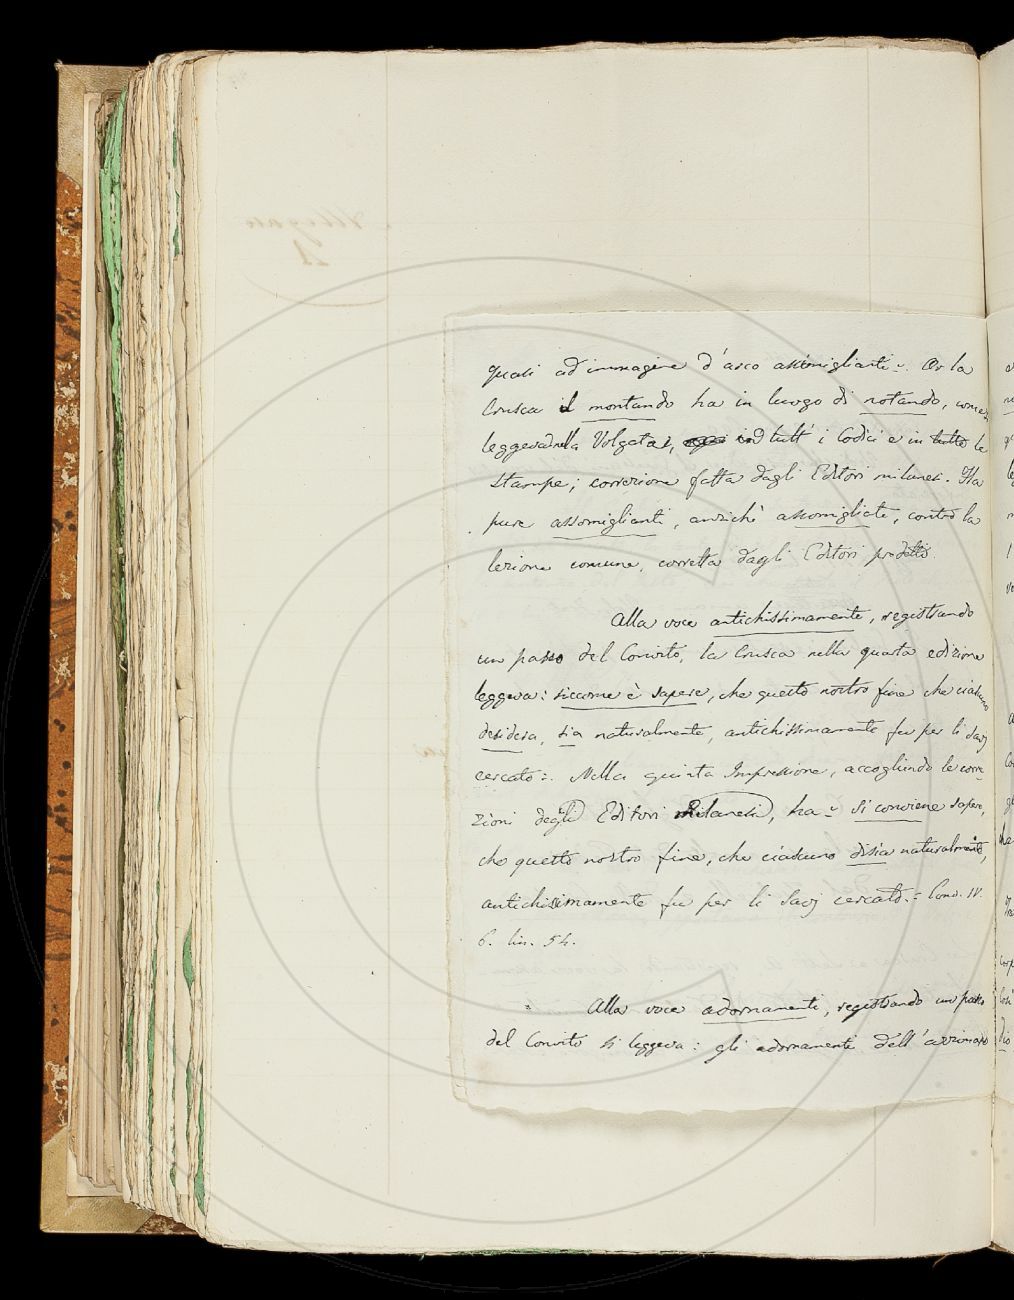 quasi ad immagine d'arco assimiglianti =. Or la
Crusca il montando ha in luogo di notando, come
leggeva nella Volgata, tutt' i Codici e in tutte le
stampe; correzione fatta dagli Editori milanesi. Ha
pure assomiglianti, anzichè assomigliate, contro la
lezione comune, corretta dagli Editori predetti.
Alla voce antichissimamente, registrando
un passo del Convito, la Crusca nella quarta edizione
leggeva: siccome è sapere, che questo nostro fine che ciascuno
desidera, sia naturalmente, antichissimamente fu per li savj
cercato =. Nella quinta Impressione, accogliendo le corre-
zioni degli Editori Milanesi, ha = Si conviene sapere,
che questo nostro fine, che ciascuno disia naturalmente,
antichissimamente fu per li Savj cercato. = Conv. IV.
6. lin. 54.
Alla voce adornamenti, registrando un passo
del Convito si leggeva: gli adornamenti dell'